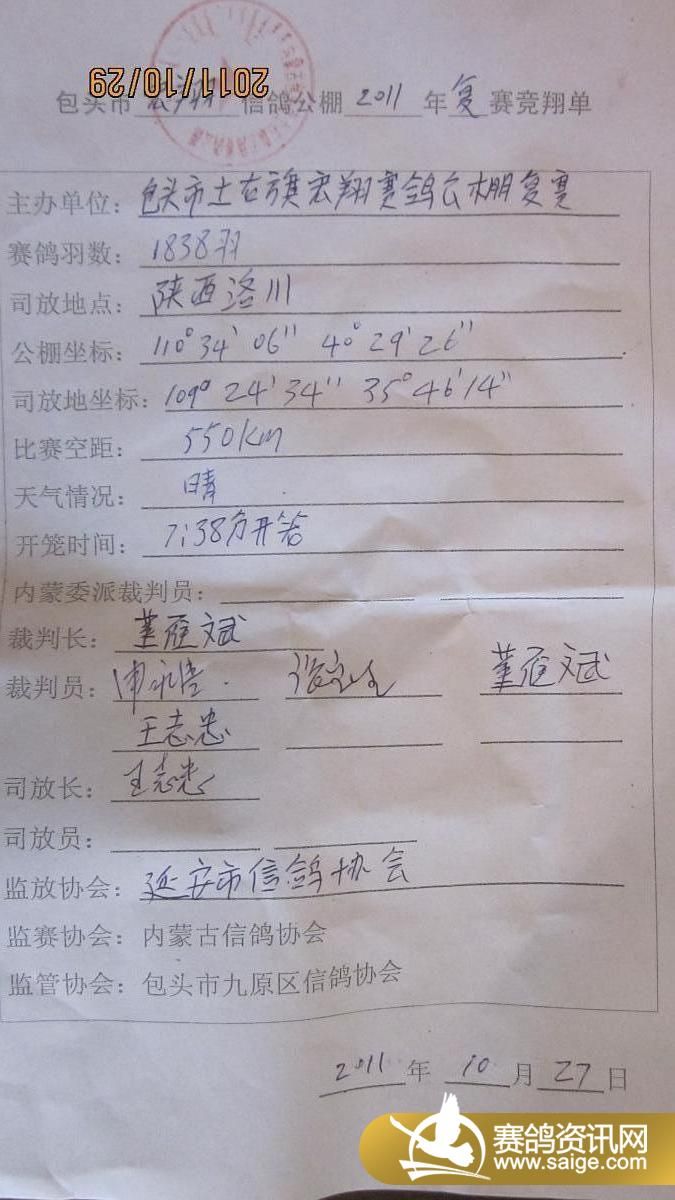 2011/10/29
包头市 宏翔 信鸽公棚 2011 年 复 赛竞翔单
主办单位：包头市土右旗宏翔赛鸽公棚复赛
赛鸽羽数：1838羽
司放地点：陕西洛川
公棚坐标：110° 34′ 06″ 40° 29′ 26″
司放地坐标：109° 24′ 34″ 35° 46′ 14″
比赛空距：550km
天气情况：晴
开笼时间：7:38分开笼
内蒙委派裁判员：
裁判长：董雁斌
裁判员： 董雁斌
王志忠
司放长：王志忠
司放员：
监放协会：延安市信鸽协会
监赛协会：内蒙古信鸽协会
监管协会：包头市九原区信鸽协会
2011 年 10 月 27 日
赛鸽资讯网
www.saige.com